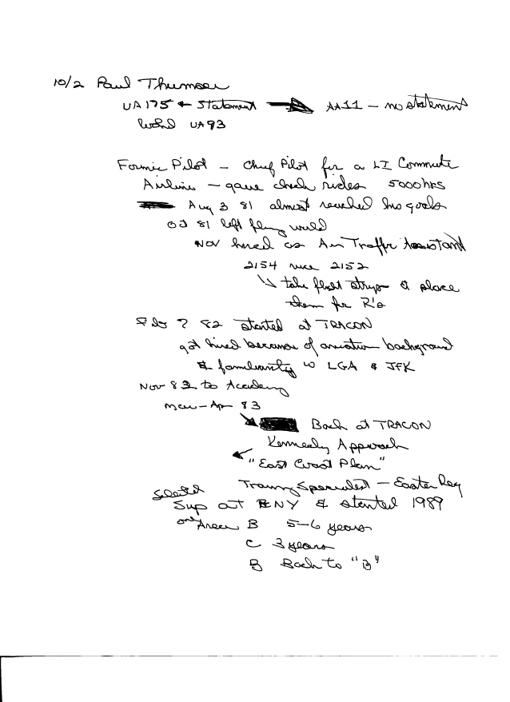 10/2 Paul Thumser
UA175 ← Statement → AA11 – no statement
UA93
Former Pilot – Chief Pilot for a LI Commute
Airline – gave check rides 5000 hrs
Aug 3 81 almost reached his goals
Oct 81 left flying world
Nov hired as Air Traffic Assistant
2154 2152
↳ take flight strips & place
them for R's
? 82 started at TRACON
got hired because of aviation background
& familiarity w LGA & JFK
Nov 82 to Academy
Mar – Apr 83
Back at TRACON
Kennedy Approach
"East Coast Plan"
Training Specialist – Eastern Reg
Selected
Sup at NY & started 1989
Area B 5–6 years
C 3 years
B Back to "B"